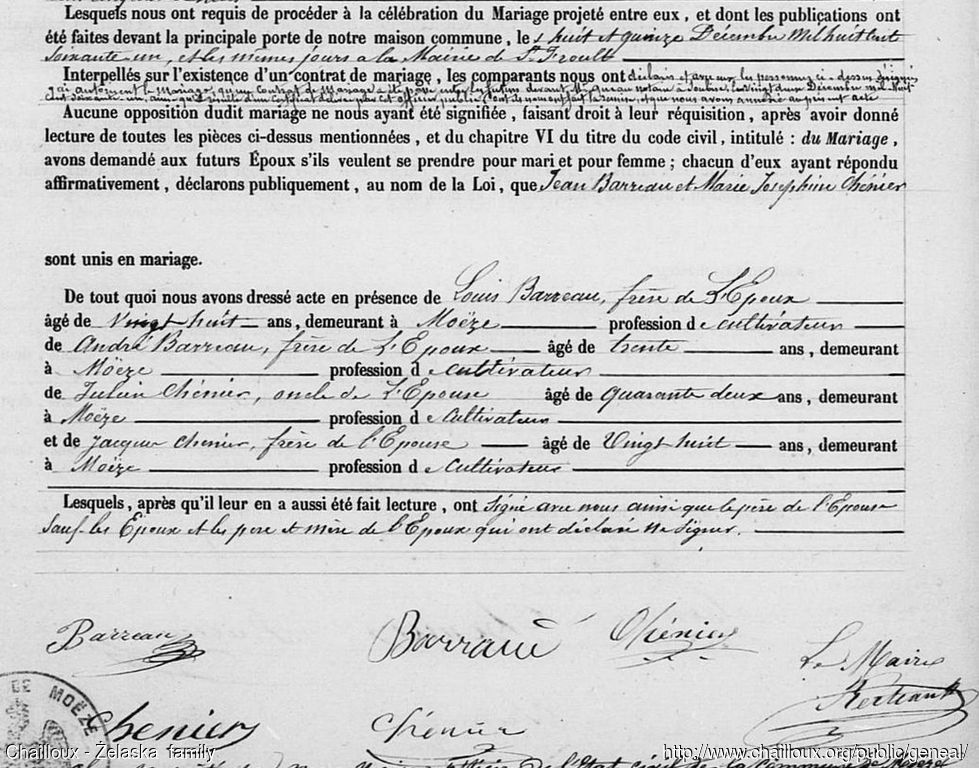 Lesquels nous ont requis de procéder à la célébration du Mariage projeté entre eux, et dont les publications ont
été faites devant la principale porte de notre maison commune, le s huit et quinze Décembre Mil huit cent
soixante un, et les mêmes jours a la Mairie de St. Froult
Interpellés sur l'existence d'un contrat de mariage, les comparants nous ont déclaré et par les personnes ci-dessus
autorisent le mariage, qu'un Contrat de Mariage a été passé notaire à Soubise, le vingt deux Décembre mil huit
cent soixante-un, ainsi qu'il résulte d'un certificat délivré par cet officier public et que nous avons annexé au présent acte
Aucune opposition dudit mariage ne nous ayant été signifiée, faisant droit à leur réquisition, après avoir donné
lecture de toutes les pièces ci-dessus mentionnées, et du chapitre VI du titre du code civil, intitulé : du Mariage,
avons demandé aux futurs Époux s'ils veulent se prendre pour mari et pour femme ; chacun d'eux ayant répondu
affirmativement, déclarons publiquement, au nom de la Loi, que Jean Barreau et Marie Josephine Chénier
sont unis en mariage.
De tout quoi nous avons dressé acte en présence de Louis Barreau, frère de L'Epoux
âgé de Vingt huit ans, demeurant à Moëze profession de cultivateur
de André Barreau, frère de L'Epoux âgé de trente ans, demeurant
à Moëze profession de cultivateur
de Julien Chénier, oncle de L'Epouse âgé de Quarante deux ans, demeurant
à Moëze profession de cultivateur
et de Jacques Chenier, frère de l'Epouse âgé de Vingt huit ans, demeurant
à Moëze profession de cultivateur
Lesquels, après qu'il leur en a aussi été fait lecture, ont signé avec nous ainsi que le père de l'Epouse
sauf les Epoux et les pere et mère de l'Epoux qui ont déclaré ne signer.
Barreau Barraud Chénier
Le Maire
DE MOËZE
Cheniers Chénier
Chailloux - Żelaska family http://www.chailloux.org/public/geneal/
de l'Etat civil de la Commune de Moëze